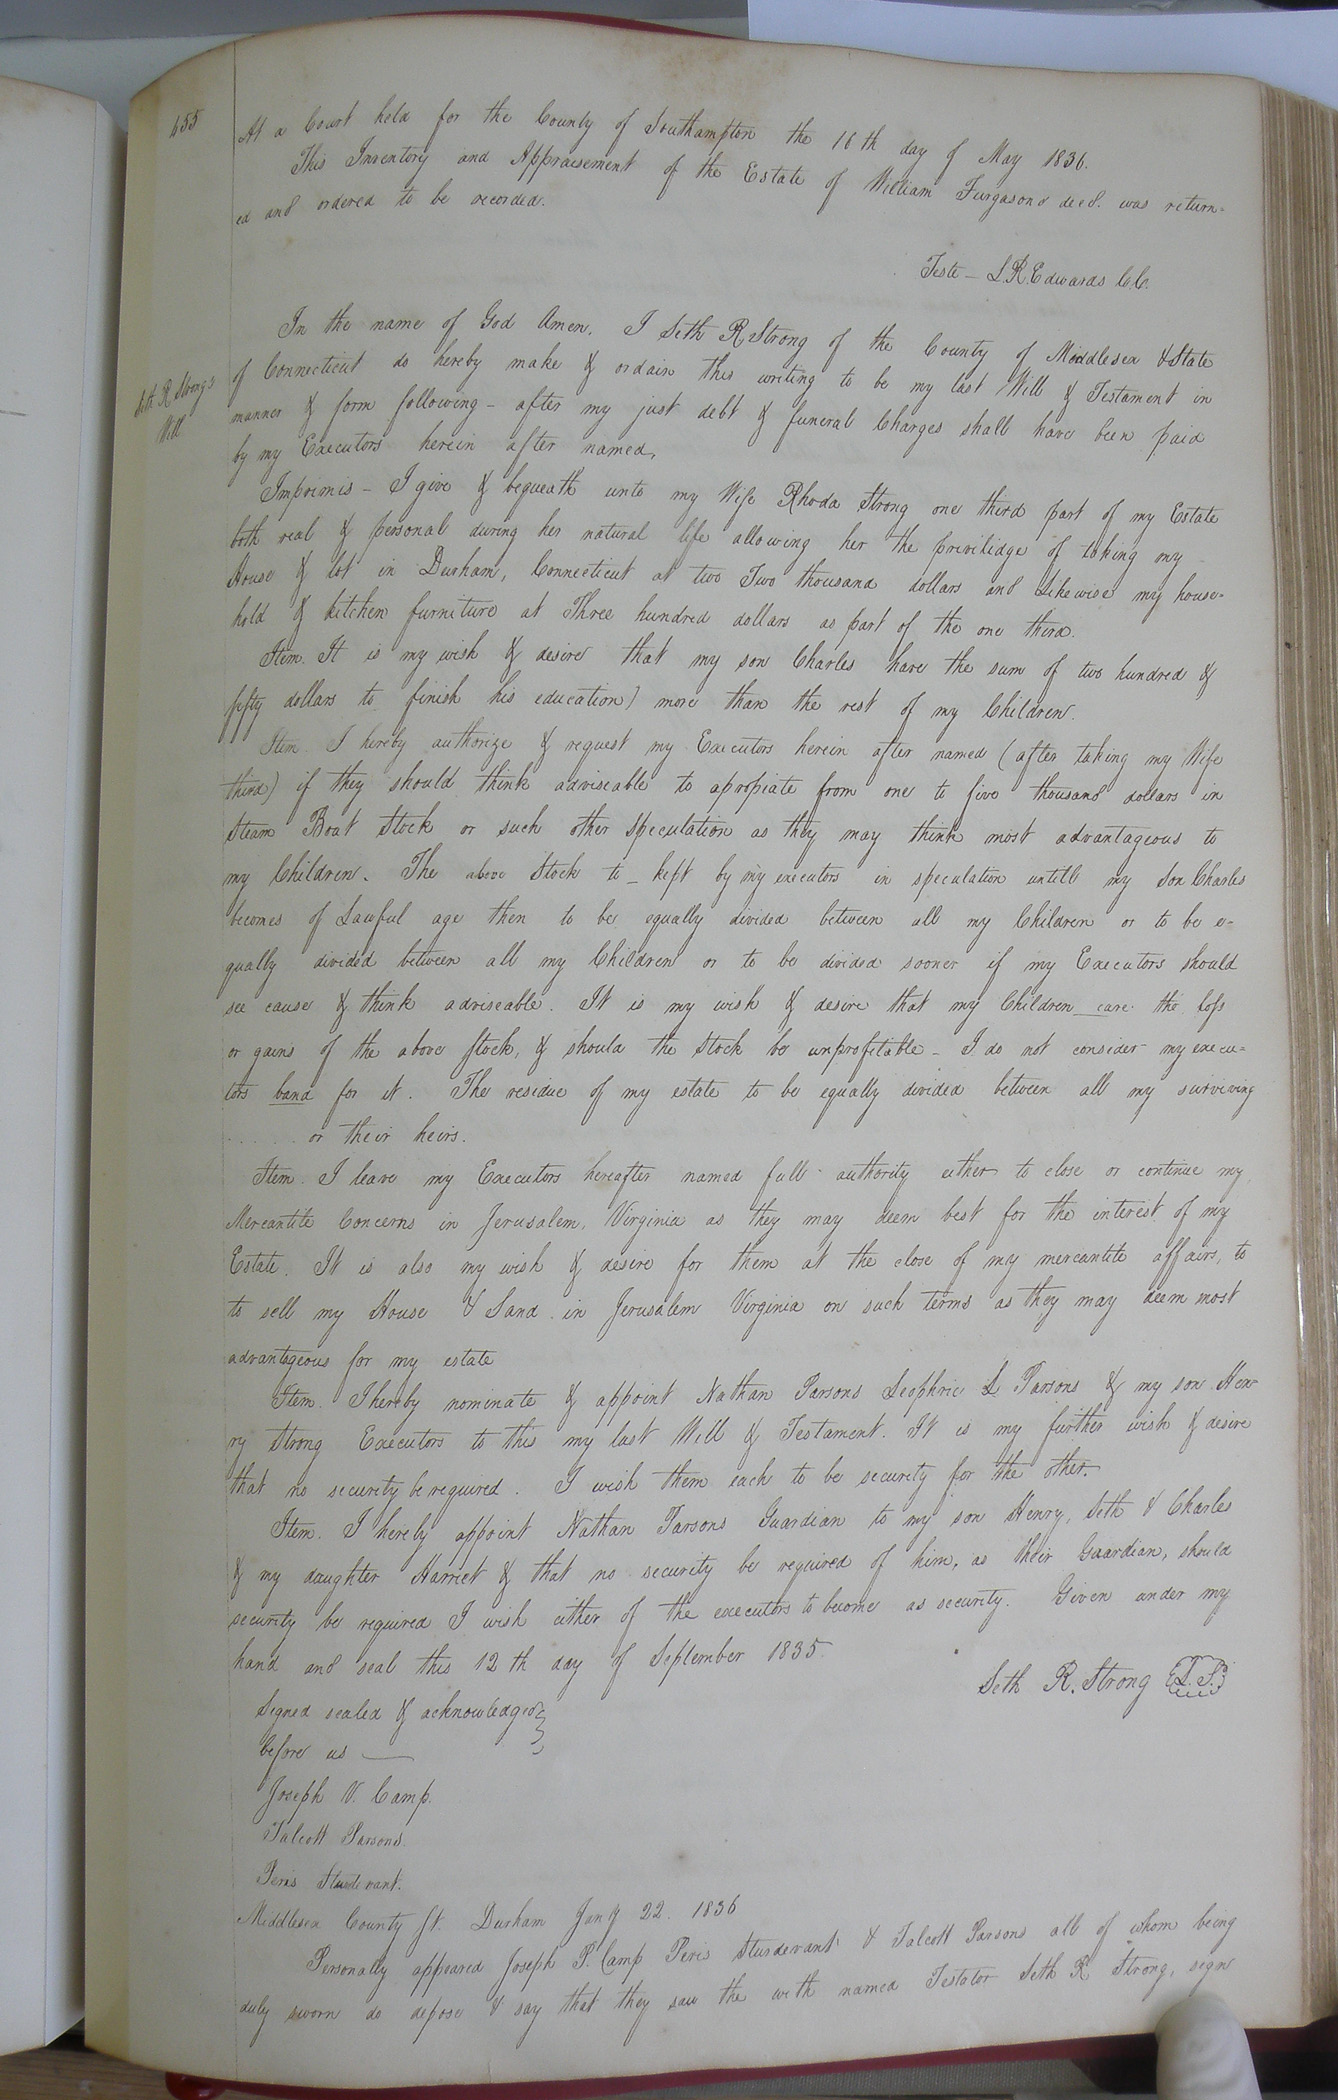 455
At a Court held for the County of Southampton the 16th day of May 1836.
This Inventory and Appraisement of the Estate of William Furgasons decd. was return-
ed and ordered to be recorded.
Teste – L.R. Edwards C.C.
Seth R Strongs
Will
In the name of God Amen. I Seth R Strong of the County of Middlesex & State
of Connecticut do hereby make & ordain this writing to be my last Will & Testament in
manner & form following – after my just debt & funeral Charges shall have been paid
by my Executors herein after named,
Imprimis – I give & bequeath unto my Wife Rhoda Strong one third part of my Estate
both real & personal during her natural life allowing her the privilidge of taking my
House & lot in Durham, Connecticut at two Two thousand dollars and Likewise my house-
hold & kitchen furniture at Three hundred dollars as part of the one third.
Item. It is my wish & desire that my son Charles have the sum of two hundred &
fifty dollars to finish his education) more than the rest of my Children.
Item. I hereby authorize & request my Executors herein after named (after taking my Wife
third) if they should think adviseable to apropiate from one to five thousand dollars in
Steam Boat Stock or such other speculation as they may think most advantageous to
my Children. The above Stock to – kept by my executors in speculation untill my Son Charles
becomes of Lawful age then to be equally divided between all my Children or to be e-
qually divided between all my Children or to be divided sooner if my Executors should
see cause & think adviseable. It is my wish & desire that my Children care the loss
or gains of the above stock, & should the stock be unprofitable – I do not consider my execu-
tors band for it. The residue of my estate to be equally divided between all my surviving
. . . . . . or their heirs.
Item. I leave my Executors hereafter named full authority either to close or continue my
Mercantile Concerns in Jerusalem, Virginia as they may deem best for the interest of my
Estate. It is also my wish & desire for them at the close of my mercantile affairs, to
to sell my House & Land in Jerusalem Virginia on such terms as they may deem most
advantageous for my estate
Item. I hereby nominate & appoint Nathan Parsons Leophric L Parsons & my son Hen-
ry Strong Executors to this my last Will & Testament. It is my further wish & desire
that no security be required. I wish them each to be security for the other.
Item. I hereby appoint Nathan Parsons Guardian to my son Henry, Seth & Charles
& my daughter Harriet & that no security be required of him, as their Guardian, should
security be required I wish either of the executors to become as security. Given under my
hand and seal this 12th day of September 1835.
Seth R. Strong (L.S.)
Signed sealed & acknowledged
before us
Joseph V. Camp.
Talcott Parsons.
Peris Sturdevant.
Middlesex County ss. Durham Jany 22. 1836
Personally appeared Joseph P. Camp Peris Sturdevant & Talcott Parsons all of whom being
duly sworn do depose & say that they saw the with named Testator Seth R. Strong, sign